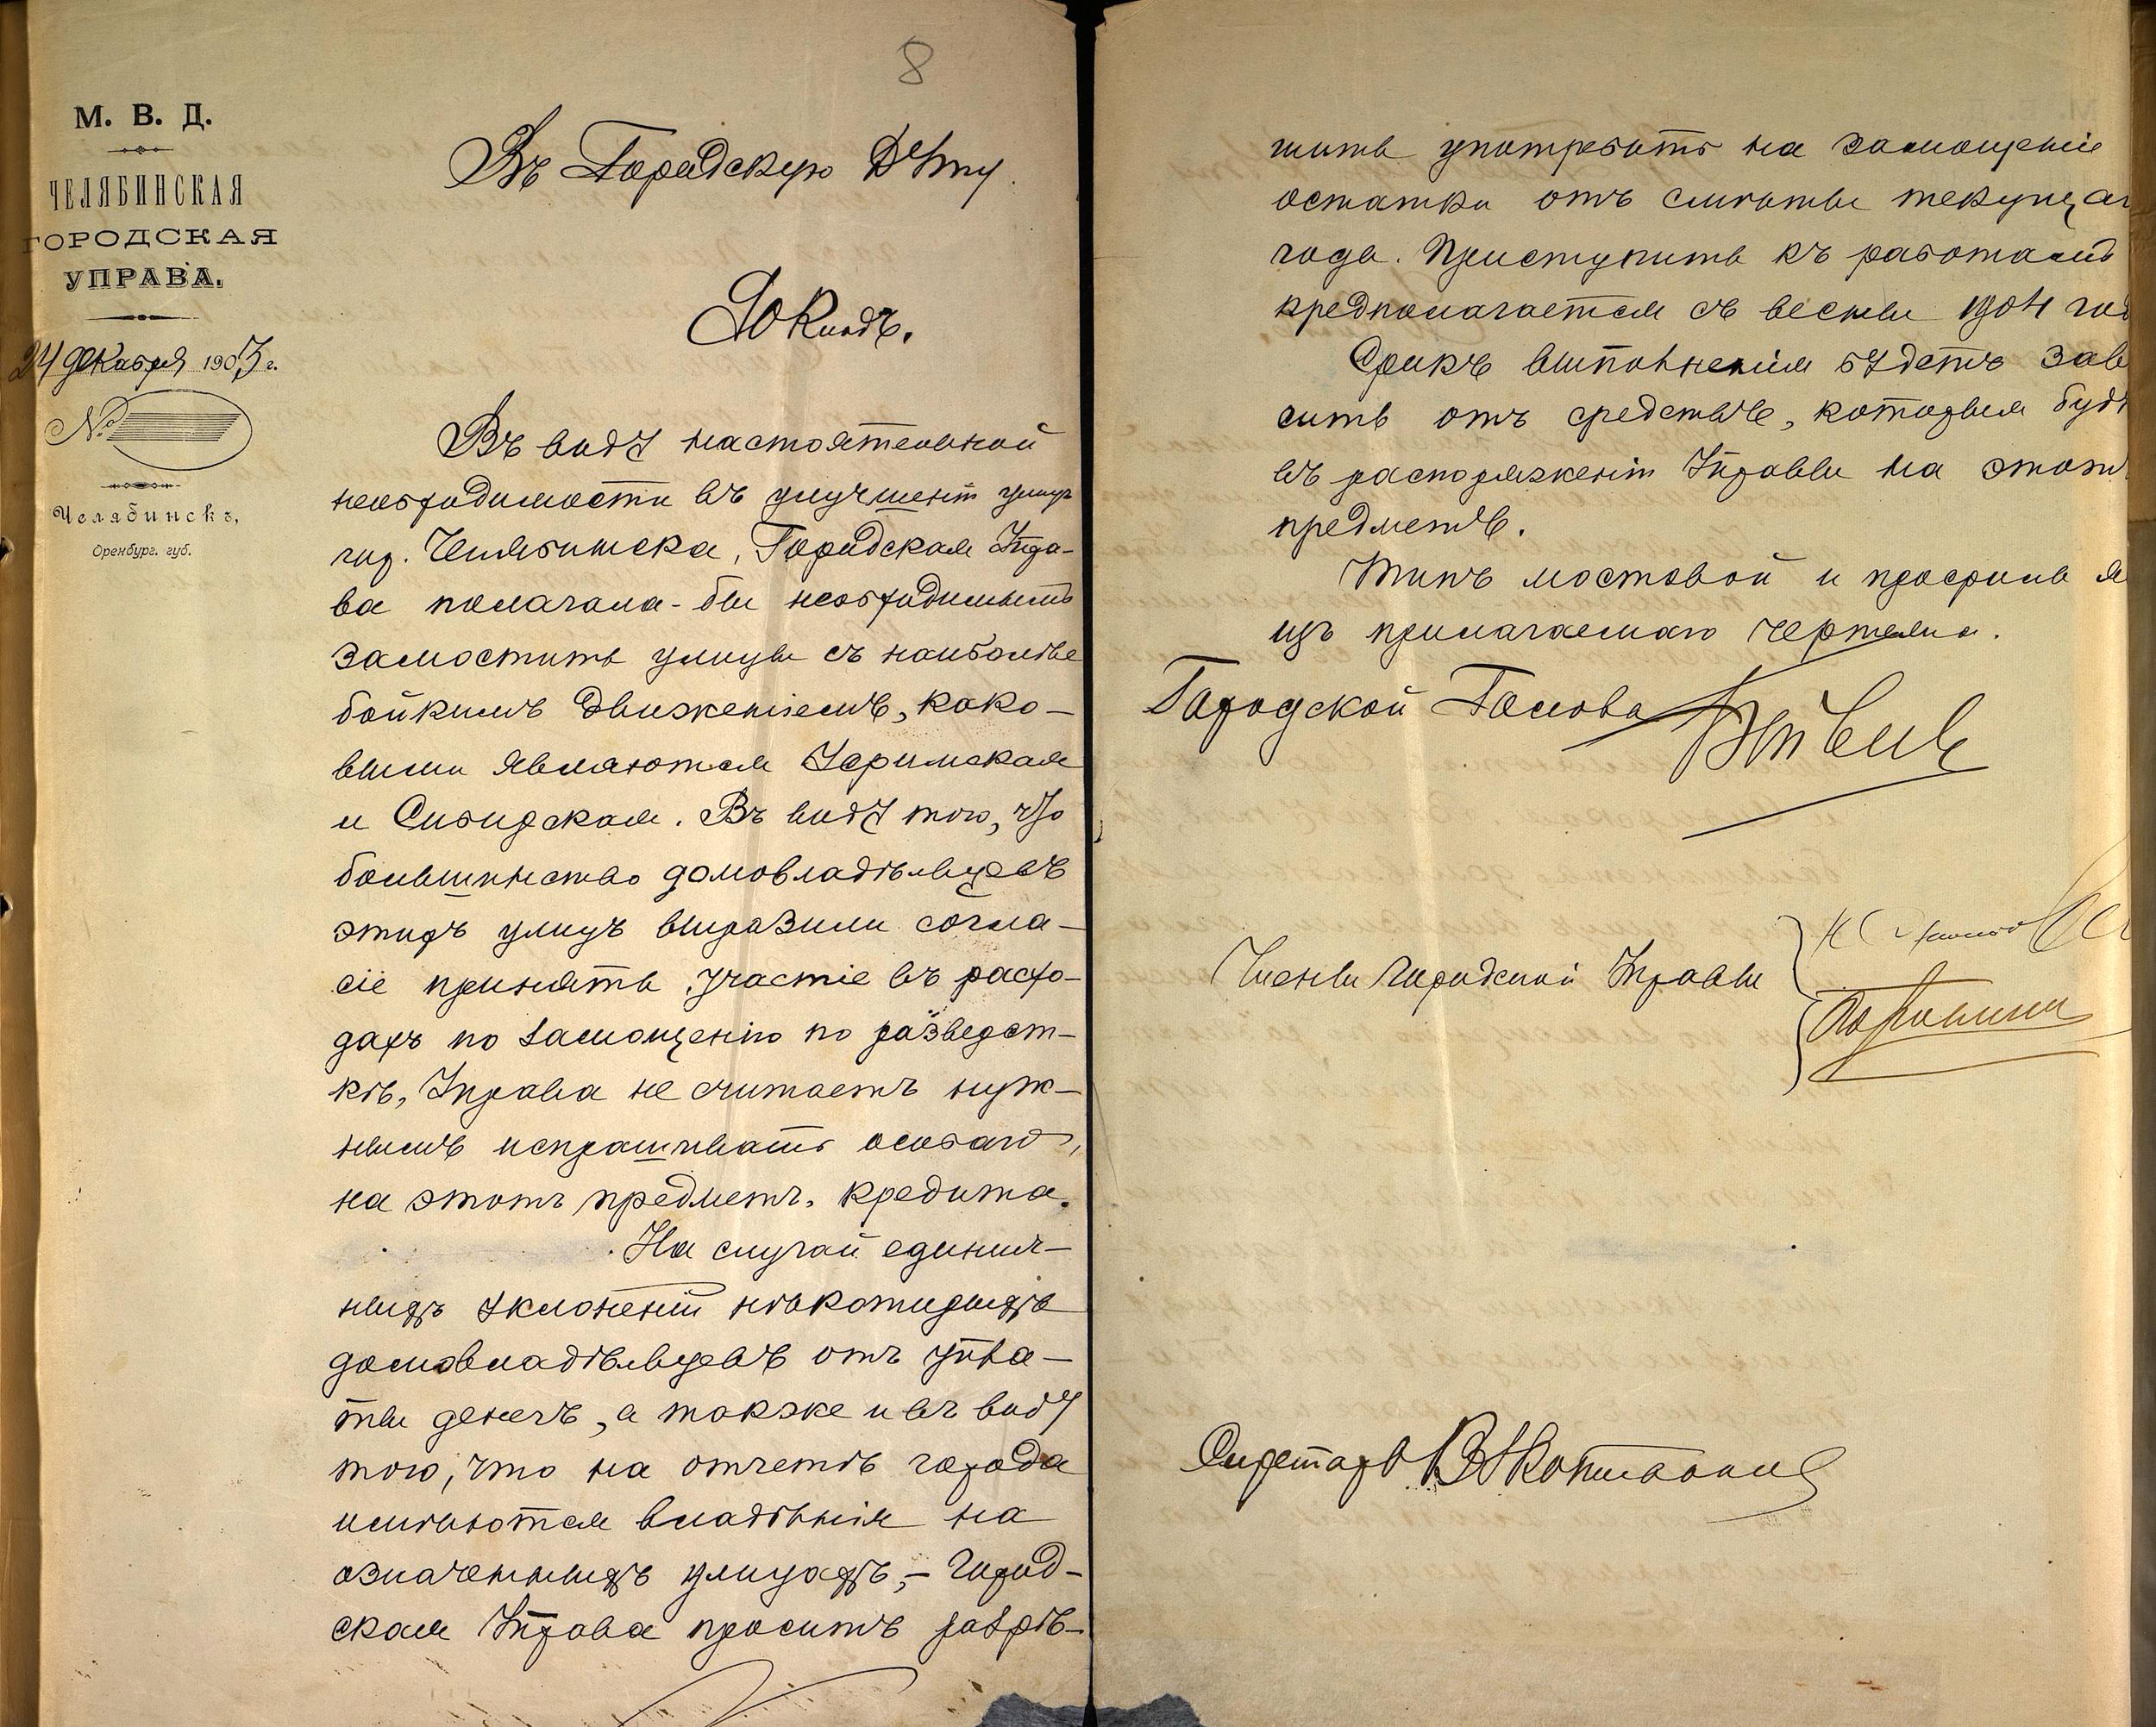 8
М. В. Д.
ЧЕЛЯБИНСКАЯ
ГОРОДСКАЯ
УПРАВА.
24 декабря 1903 г.
№
Челябинскъ,
Оренбург. губ.
Въ Городскую Думу.
Докладъ.
Въ виду настоятельной
необходимости въ улучшеніи улицъ
гор. Челябинска, Городская Упра-
ва полагала-бы необходимымъ
замостить улицы съ наиболѣе
бойкимъ движеніемъ, како-
выми являются Уфимская
и Сибирская. Въ виду того, что
большинство домовладѣльцевъ
этихъ улицъ выразили согла-
сіе принять участіе въ расхо-
дахъ по замощенію по разверст-
кѣ, Управа не считаетъ нуж-
нымъ испрашивать особаго,
на этотъ предметъ, кредита.
На случай единич-
ныхъ уклоненій нѣкоторыхъ
домовладѣльцевъ отъ упла-
ты денегъ, а также и въ виду
того, что на отчетѣ города
имѣются владѣнія на
означенныхъ улицахъ, - Город-
ская Управа проситъ разрѣ-
шить употребить на замощеніе
остатки отъ смѣты текущаг
года. Приступить къ работамъ
предполагается съ весны 1904 год
Срокъ выполненія будетъ зави
сить отъ средствъ, которыя буду
въ распоряженіи Управы на этотъ
предметъ.
Типъ мостовой и профиль я
изъ прилагаемаго чертежа.
Городской Голова
Члены Городской Управы
Секретарь